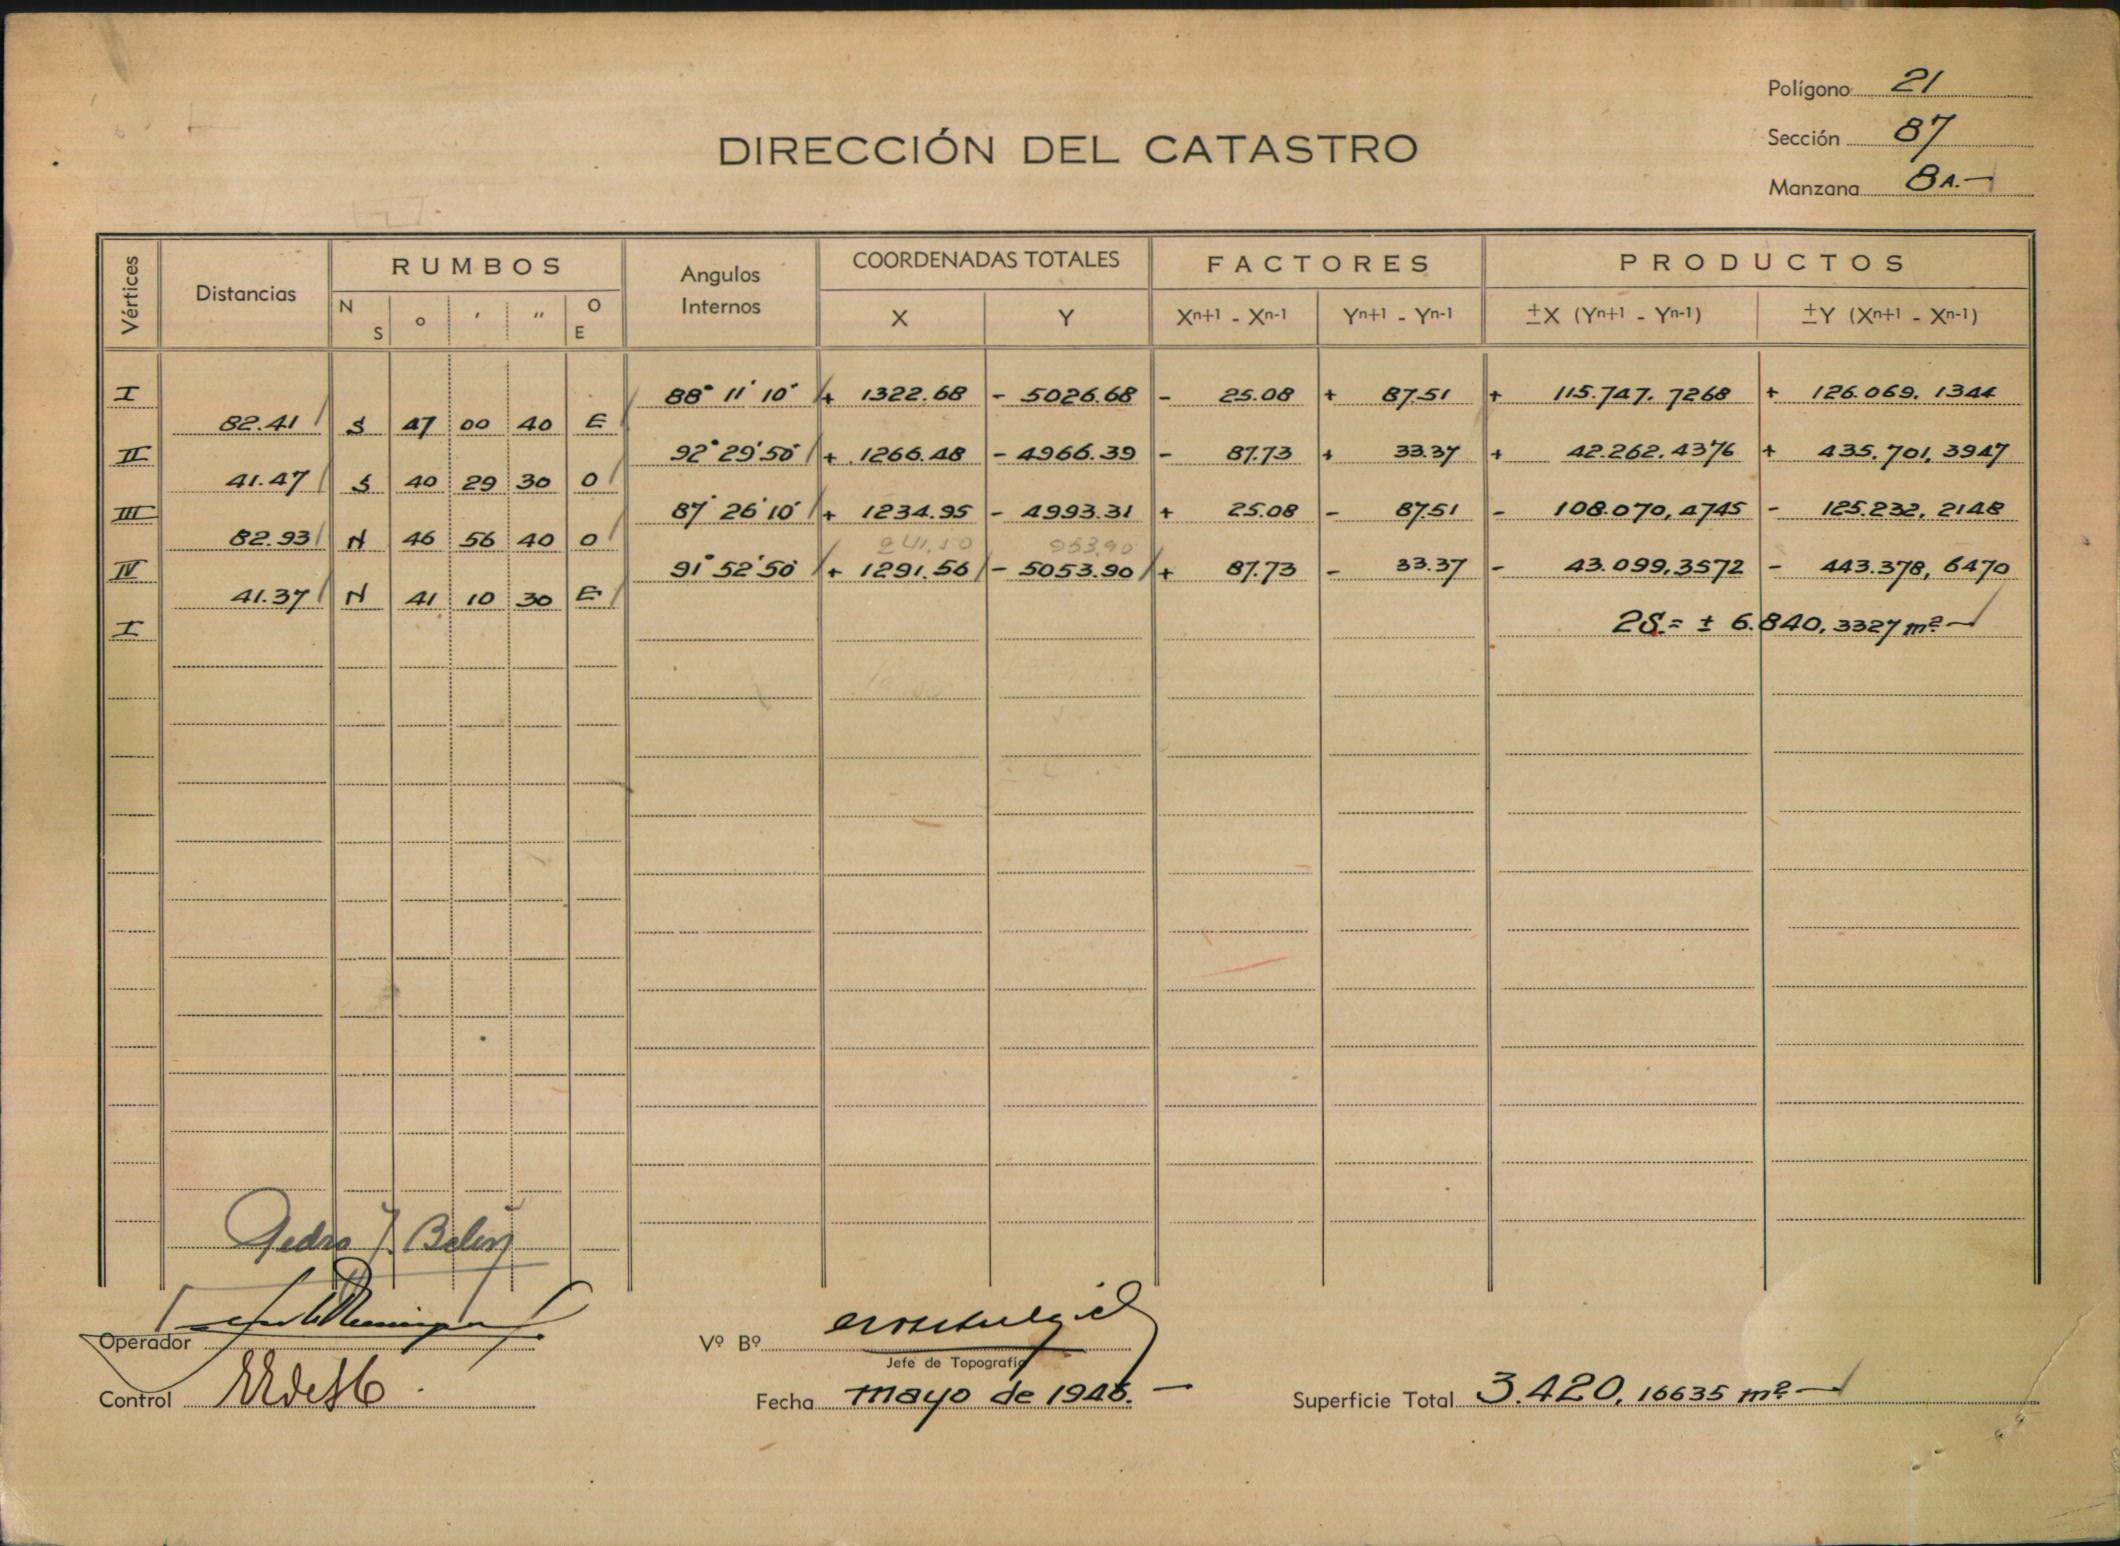 Polígono 21
DIRECCIÓN DEL CATASTRO
Sección 87
Manzana 8A.-
Vértices Distancias RUMBOS Angulos Internos COORDENADAS TOTALES FACTORES PRODUCTOS
N S ° ' " O E X Y Xn+1 - Xn-1 Yn+1 - Yn-1 ±X (Yn+1 - Yn-1) ±Y (Xn+1 - Xn-1)
I 88° 11' 10" + 1322.68 - 5026.68 - 25.08 + 87.51 + 115.747.7268 + 126.069.1344
82.41 S 47 00 40 E
II 92° 29' 50" + 1266.48 - 4966.39 - 87.73 + 33.37 + 42.262.4376 + 435.701,3947
41.47 S 40 29 30 O
III 87° 26' 10" + 1234.95 - 4993.31 + 25.08 - 87.51 - 108.070,4745 - 125.232,2148
82.93 N 46 56 40 O
953.90
IV 91° 52' 50" + 1291.56 - 5053.90 + 87.73 - 33.37 - 43.099,3572 - 443.378,6470
41.37 N 41 10 30 E
I 2S.= ± 6.840,3327 m²
Pedro J.
Operador
Vº Bº
Jefe de Topografía
Control
Fecha mayo de 1946.-
Superficie Total 3.420,16635 m²